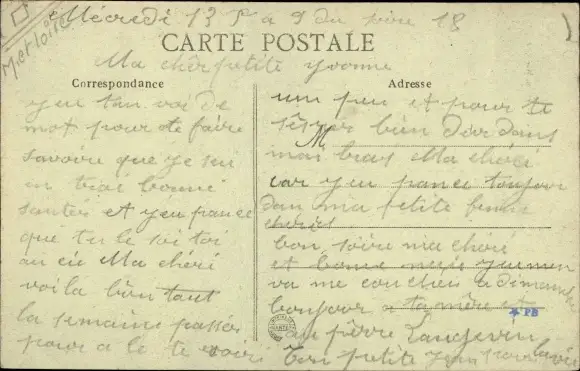 Mécredi 13 à 9 du soire 18
M.et loire
CARTE POSTALE
Ma chèr petite Yvonne
Correspondance
yeu tan voi de
mot pour te faire
savoire que ye sui
en trai bonne
santés et yeu pance
que tu le soi toi
au Ma chéri
voila bien tant
la semaine passés
pour a le te voire
Adresse
un peu et pour te
sèrer bien dans
mai bras Ma chéri
car yeu pance toujour
dan ma petite femme
chéries
bon soire ma chéri
et bonne nuis
va me couchés a dimanche
bonjour a ta mère et
au pèrre Langevin
Ton petite pour la vie
PB